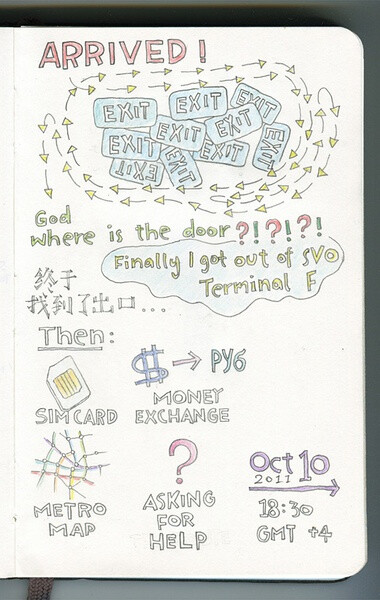 ARRIVED!
EXIT EXIT EXIT
EXIT EXIT
EXIT EXIT EXIT
EXIT EXIT
God
where is the door?!?!?!
Finally I got out of SVO
Terminal F
终于
找到了出口...
Then:
$ → РУБ
SIMCARD
MONEY
EXCHANGE
?
METRO
MAP
ASKING
FOR
HELP
Oct 10
2011
18:30
GMT +4